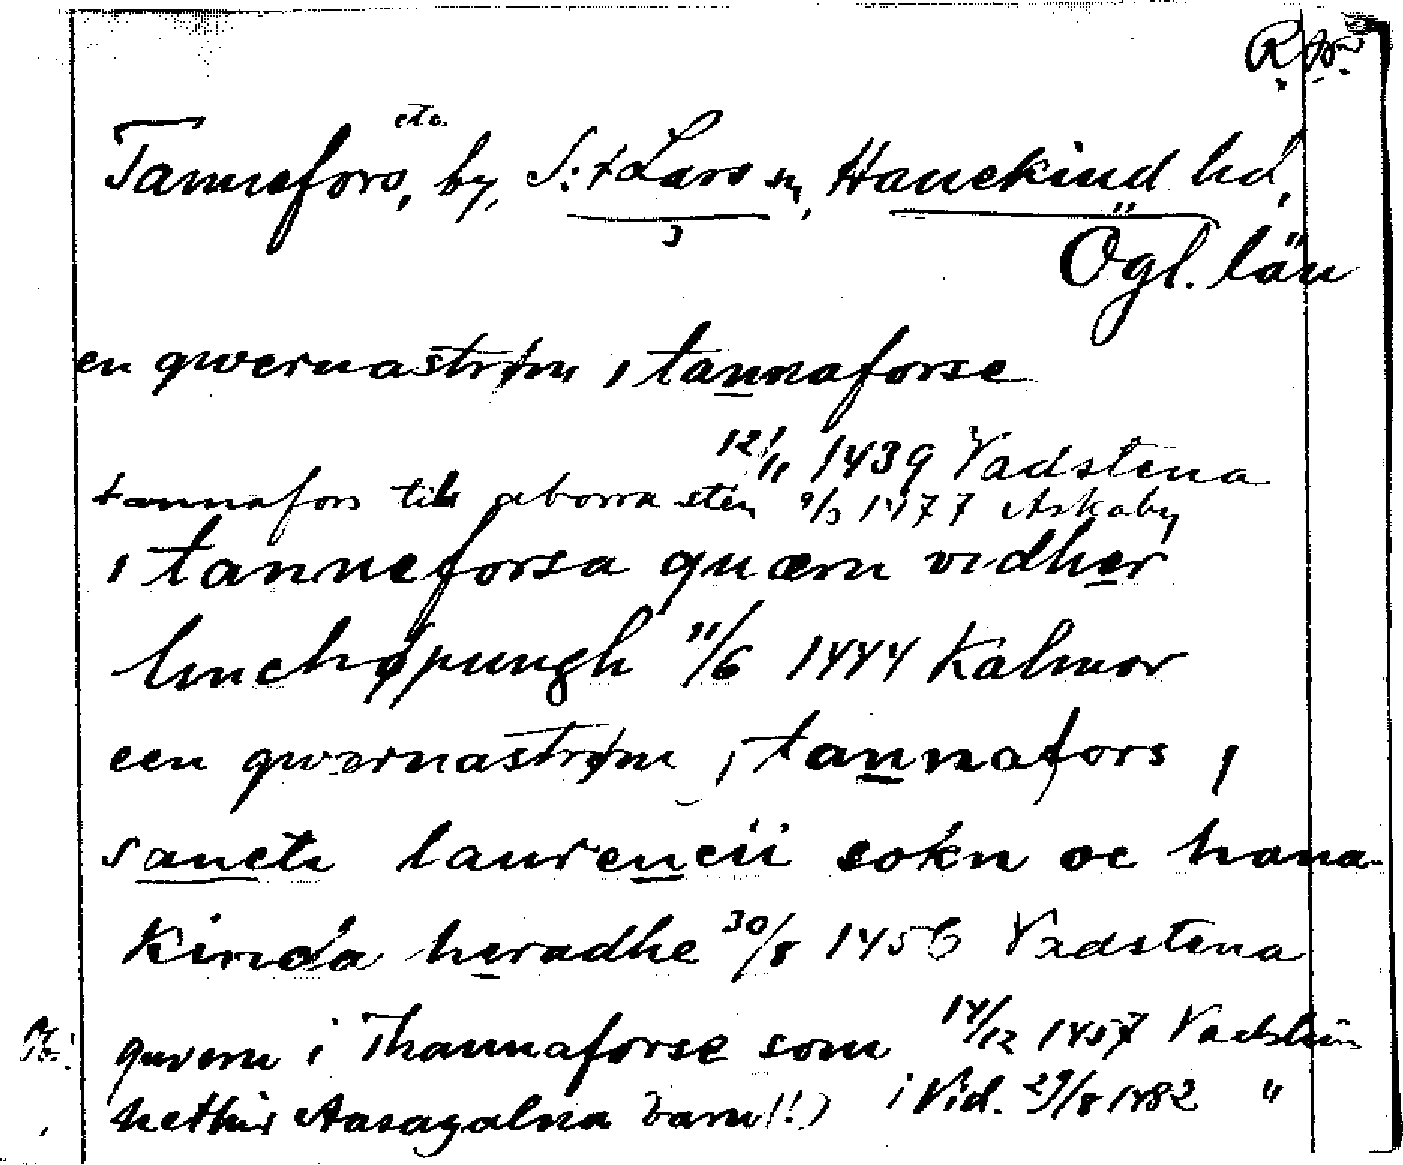 etc.
Tannefors, by, S:t Lars sn, Hanekind hd,
Ögl. län
en qwernastrøm i tannaforse
12/11 1439 Vadstena
tannafors till aborra sten 9/3 1477 Askaby
i tanneforsa quærn vidher
linchøpungh 11/6 1444 Kalmar
een qwærnastrøm i tannafors i
sancti laurencii sokn oc hana-
kinda heradhe 30/8 1456 Vadstena
quern i Thannaforse som 14/12 1457 Vadstena
hethir Aasagalna barn(!) i Vid. 29/8 1482 "